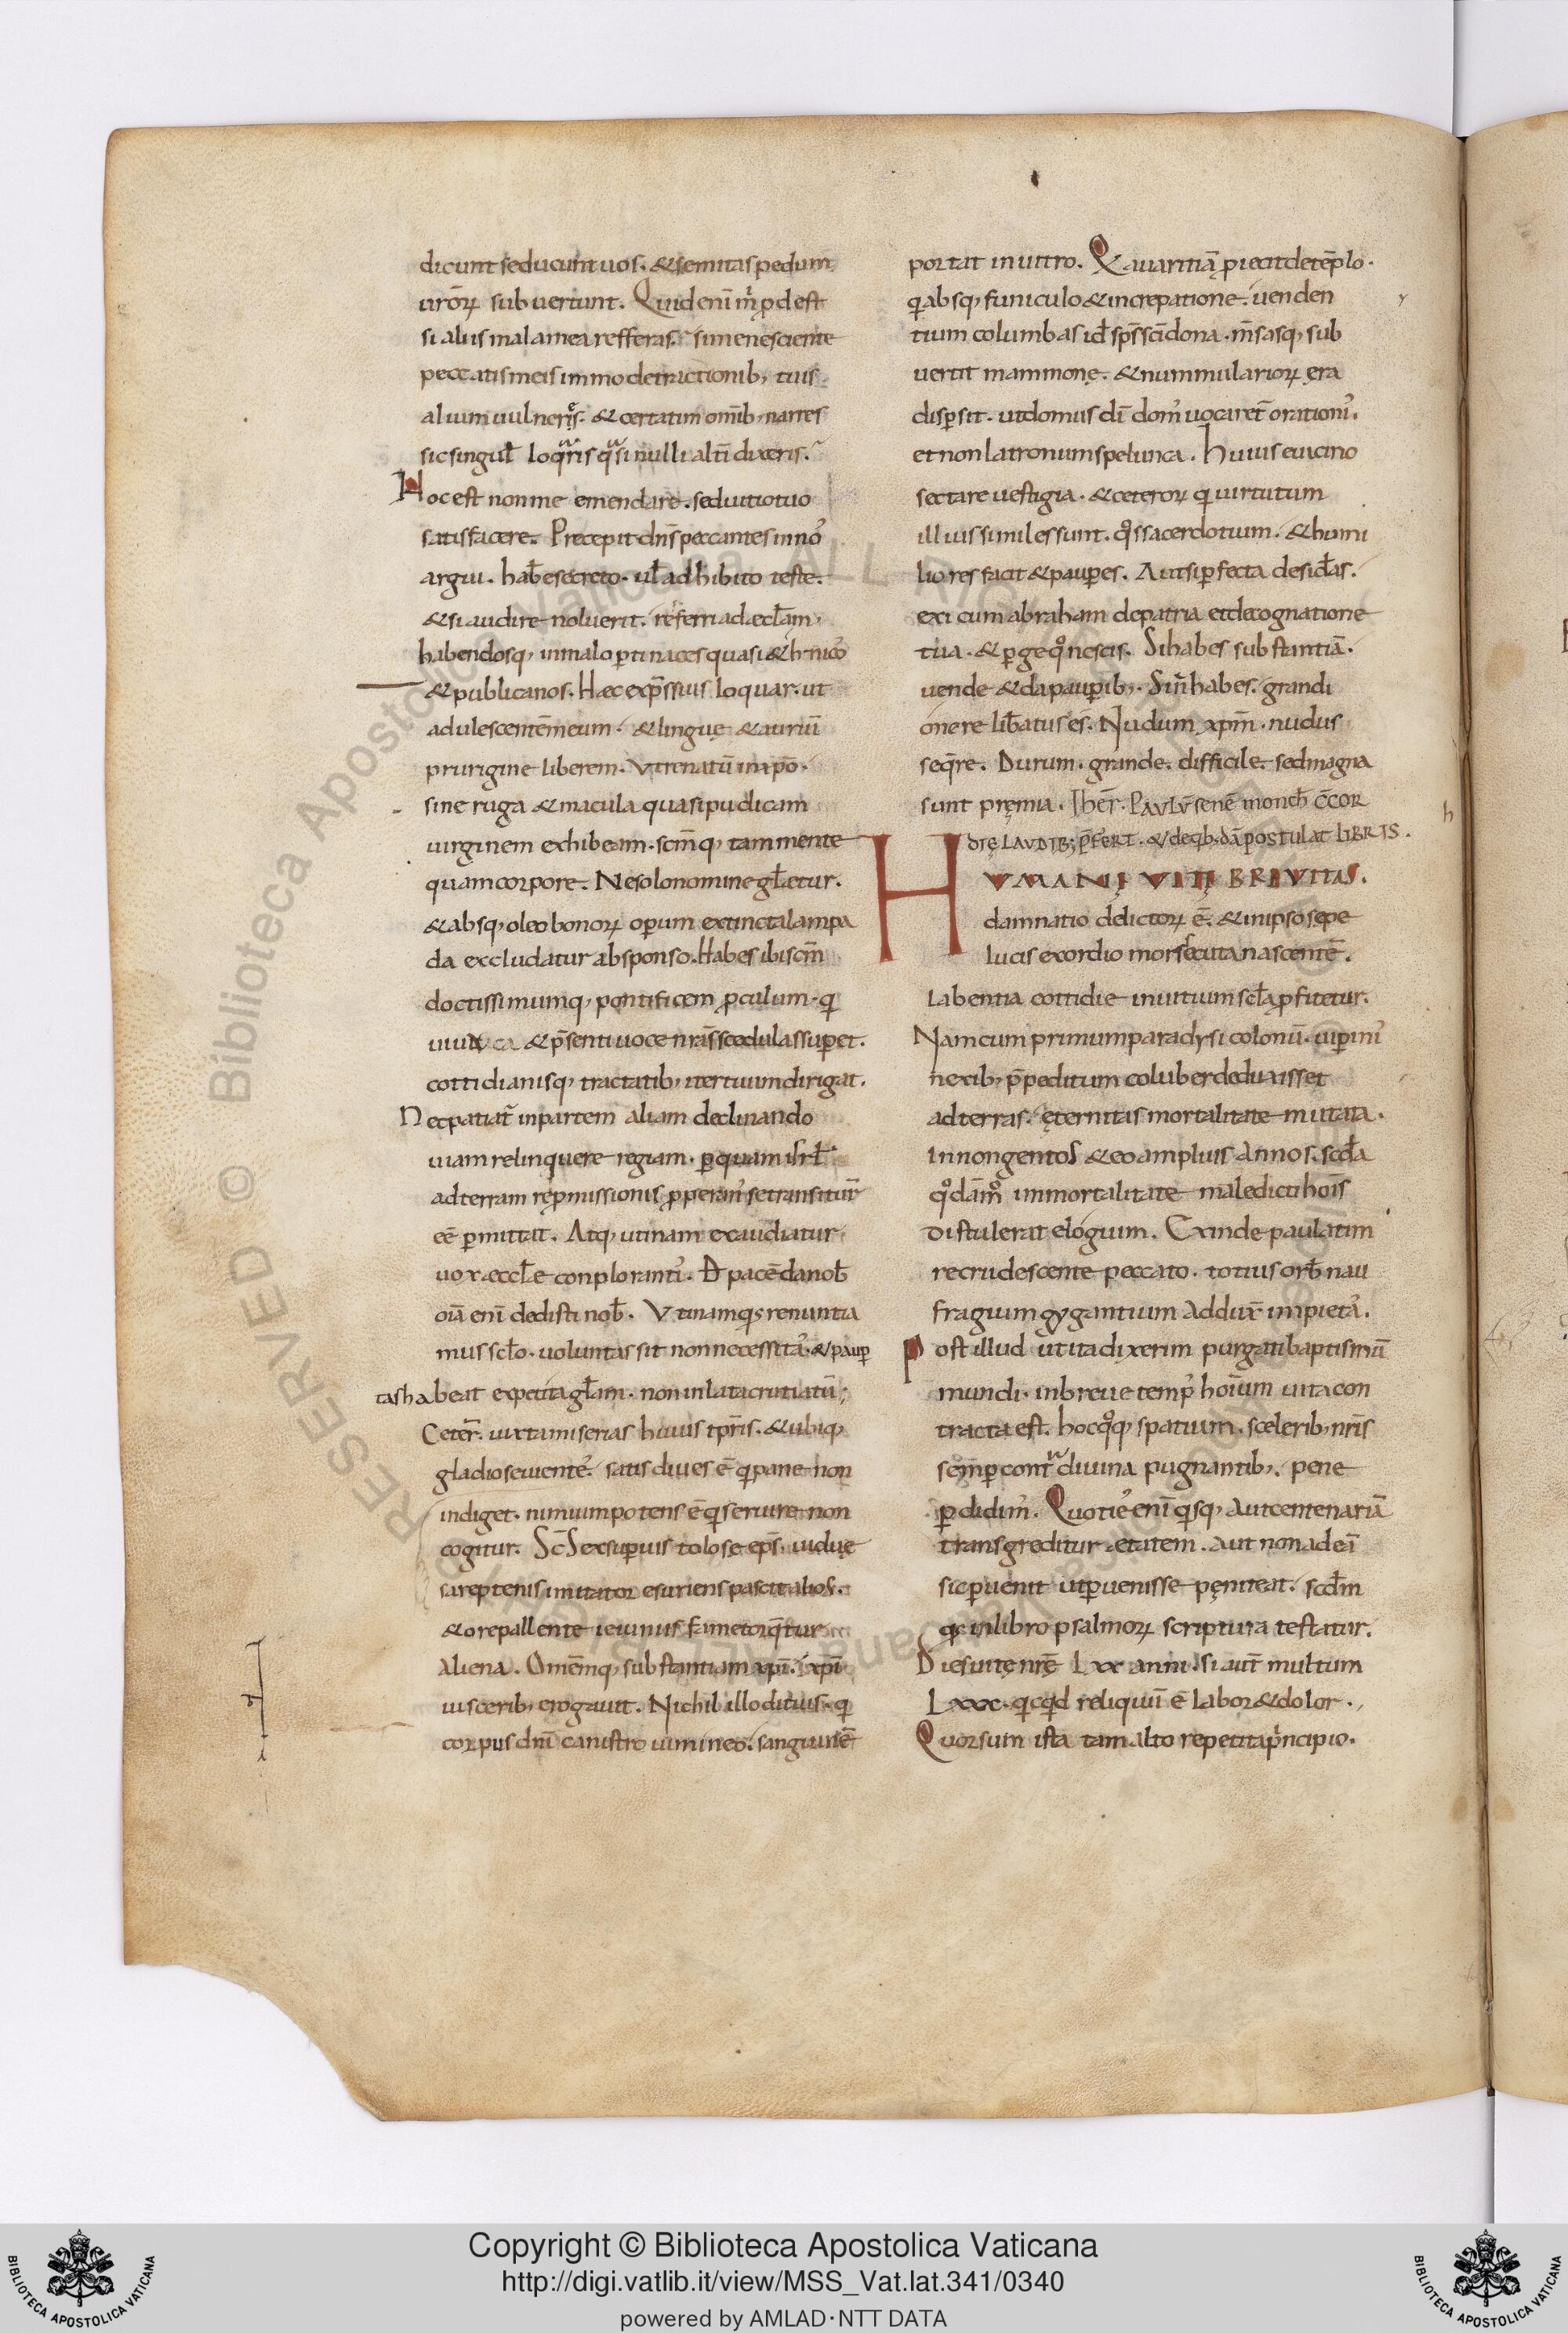 dicunt seducunt uos. & semitas pedum
urōꝝ subuertunt. Quid enī m̄ ꝓdest
si aliis mala mea refferas. si me nesciente
peccatis meis immo detractionib; tuis
alium uulneres. & certatim omīb; narres
sic singul̄ loqueris quasi nulli altī dixeris.
Hoc est non me emendare. sed uitio tuo
satisfacere. Precepit dn̄s peccantes in nos
argui. habere secreto. ul̄ adhibito teste.
& si audire noluerit. referri ad ęcl̄am,
habendosq; in malo ꝑtinaces quasi & hnicos
& publicanos. Hæc exp̄ssius loquar. ut
adulescentē meum. & linguę & auriū
prurigine liberem. Vt renatū in xp̄o.
sine ruga & macula quasi pudicam
uirginem exhibeam. scm̄q; tam mente
quam corpore. Ne solo nomine gl̄etur.
& absq; oleo bonoꝝ operum extincta lampa
da excludatur absponso. Habes ibi scm̄
doctissimumq; pontificem ꝓculum. qi
uiua & p̄senti uoce nr̄as scedulas suꝑet.
cottidianisq; tractatib; iter tuum dirigat.
Nec patiat̄ in partem aliam declinando
uiam relinquere regiam. ꝑ quam isrl̄
ad terram repromissionis ꝓperans se transiturū
eē ꝑmittat. Atq; utinam exaudiatur
uox æccl̄e conplorantis. Dn̄e pacē da nob̄
oīa enī dedisti nob̄. Vtinam qd renuntia
mus scl̄o. uoluntas sit non necessitas. & pauꝑ
tas habeat expetita gl̄am. non inlata cruciatū;
Ceterū. iuxta miserias huius tp̄ris. & ubiq;
gladio seuiente. satis diues ē qui pane non
indiget. nimium potens ē qui seruire non
cogitur. Sc̄s exsuꝑius tolose ep̄s. uiduę
sareptenis imitator esuriens pascit alios.
& ore pallente ieiuniis fame torq̄tur
aliena. Omēmq; substantiam xp̄i. xp̄i
uiscerib; erogauit. Nichil illo ditius. qi
corpus dn̄i canistro uimineo. sanguinē
portat in uitro. Q auaritiā ꝓiecit de tēplo.
qi absq; funiculo & increpatione. uenden
tium columbas id̄ sp̄s sc̄i dona. m̄sasq; sub
uertit mammonę. & nummularioꝝ ęra
dispersit. ut domus dī domus uocaret̄ orationis.
et non latronum spelunca. Huius e uicino
sectare uestigia. & ceteroꝝ qi uirtutum
illius similes sunt. quos sacerdotium. & humi
liores facit & pauꝑes. Aut si ꝑfecta desid̄as.
exi cum abraham de patria et de cognatione
tua. & ꝑge quo nescis. Si habes substantiā.
uende & da pauꝑib;. Si n̄ habes. grandi
onere lib̄atus es. Nudum xp̄m. nudus
seq̄re. Durum. grande. difficile. sed magna
sunt pręmia. Iher. PAVLV̄ senē monch̄ c̄cor
dię LAVDIB; p̄fert. & de qb. dā postulat LIBRIS.
HVMANĘ VITĘ BREVITAS.
damnatio delictoꝝ ē. & in ipso sepe
lucis exordio mors secuta nascentē.
Labentia cottidie in uitium scl̄a ꝓfitetur.
Nam cum primum paradysi colonū. uiꝑinis
nexib; p̄peditum coluber deduxisset
ad terras. ęternitas mortalitate mutata.
in nongentos & eo amplius annos. scd̄a
quodāmodo immortalitate maledicti hoīs
distulerat elogium. Exinde paulatim
recrudescente peccato. totius orb̄ nau
fragium gygantium adduxit impietas.
Post illud ut ita dixerim purgati baptismū
mundi. in breue tempus hoīum uita con
tracta est. hoc quoq; spatium. scelerib; nr̄is
semper contra diuina pugnantib;. pene
ꝑdidimus. Quoties enī qisq; aut centenariā
transgreditur ętatem. aut non ad eā
sic ꝑuenit ut ꝑuenisse pęniteat. scd̄m
qd in libro psalmoꝝ scriptura testatur.
Dies uitę nr̄ę Lxx anni. si aut̄ multum
Lxxx. qicqid reliquū ē labor & dolor.
Quorsum ista tam alto repetita principio.
Copyright © Biblioteca Apostolica Vaticana
http://digi.vatlib.it/view/MSS_Vat.lat.341/0340
powered by AMLAD·NTT DATA